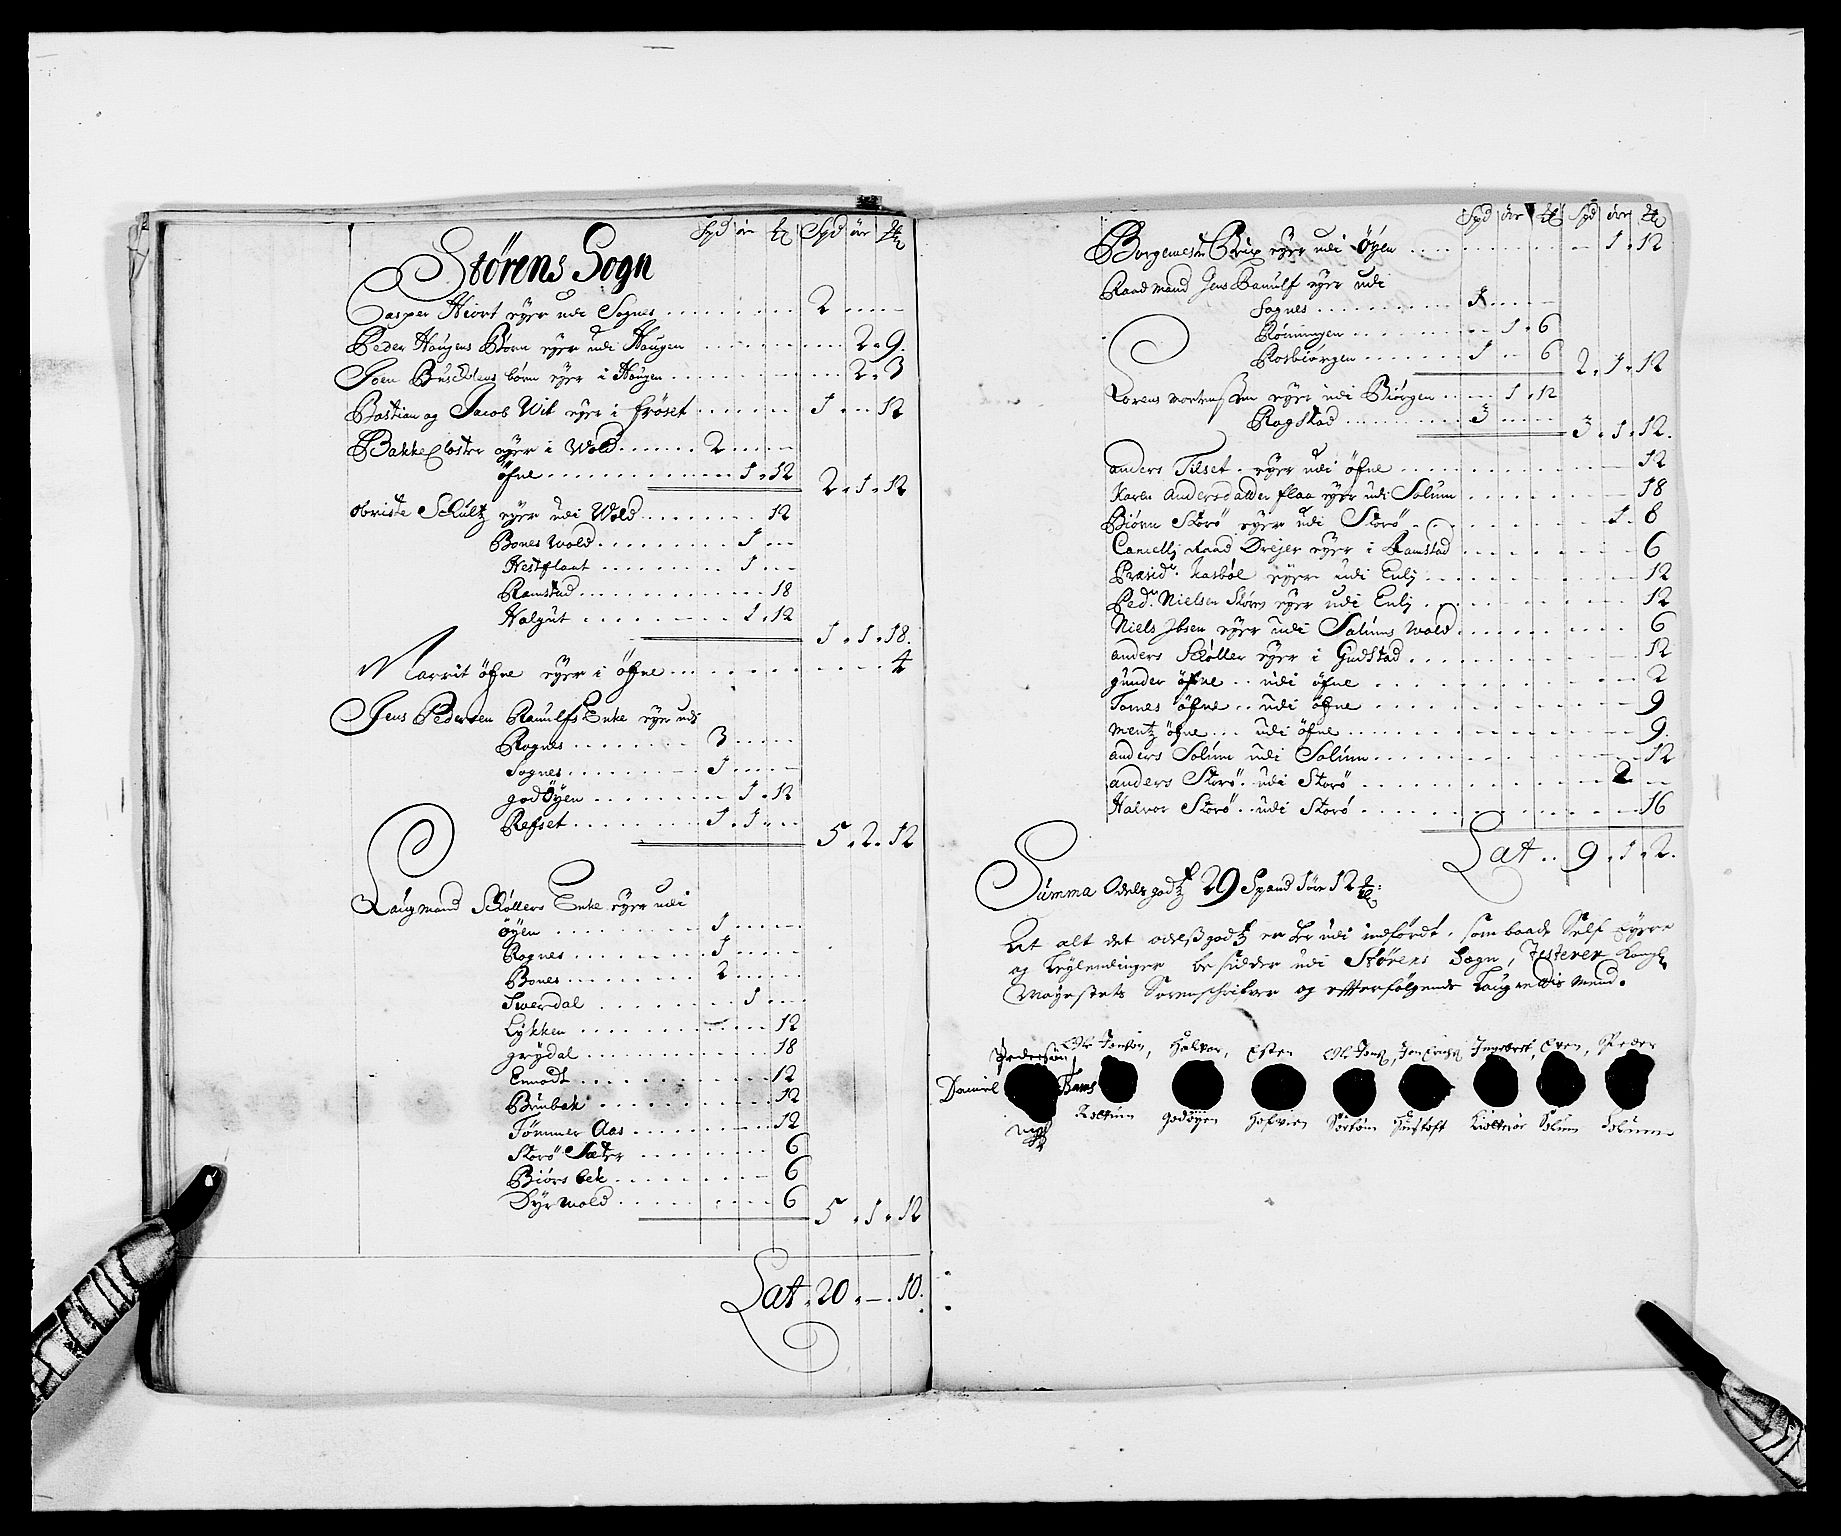 Spd ør ℔ Spd ør ℔
Størens Sogn
Casper Hiort eyer udi Sognes . . . 2 . . .
Peder Haugens Børn eyer udi Haugen . . . 2 . 9.
Joen Buschlens børn eyer i Haugen . . . 2 . 3
Bastian og Jacob Wit eyer i Frøset . . . 1 . . 12
Bakke Closter eyer i Wold . . . 2 . . .
øfne . . . 1 . 12 2 . 1 . 12
obriste Schultz eyer udi Wold . . . 12
Bones Wold . . . 1 . .
Hestflaat . . . 1 . .
Ramstad . . . 18
Halgut . . . 1 . 12
1 . 1 . 18.
Marrit øfne eyer i øfne . . . 4
Jens Pedersen Ramulfs Enke eyer udi
Rognes . . . 3 . . .
Sognes . . . 1 . . .
godøyen . . . 1 . 12
Refset . . . 1 . 1 . . 5 . 2 . 12
Laugmand Schøllers Enke eyer udi
øyen . . . 1 . . .
Rognes . . . 1 . . .
Bones . . . 2 . . .
Swerdal . . . 1 . .
Lykken . . . 12
grydal . . . 18
Enodt . . . 12
Brubak . . . 12
Tømmer Aas . . . 12
Storø Sæter . . . 6
Biørs bek . . . 6
Dyrwold . . . 6 5 . 1 . 12
Lat . 20 . — . 10.
Spd ør ℔ Spd ør ℔
Borgemester Brix eyer udi Øyen . . . 1 . 12
Raadmand Jens Ramulf eyer udi
Sognes . . . 1 . . .
Røningen . . . 1 . 6
Rosbiørgen . . . 1 . . 6 2 . 1 . 12
Lorens Mortenssen eyer udi Biørgen . . . 1 . 12
Rogstad . . . 3 . . . 3 . 1 . 12.
anders Tilset . eyer udi øfne . . . 12
Karen Andersdatter flaa eyer udi Solum . . . 18
Biørn Storø eyer udi Storø . . . 1 . 8
Cancellj Raad Drejer eyer i Ramstad . . . 6
Præsidt. Kasbøl eyer udi Enlj . . . 12
Ped. Nielsen Støren eyer udi Enlj . . . 12
Niels Jbsen eyer udi Solums Wold . . . 6
anders Schøller eyer i Gudstad . . . 12
gunder øfne . . udi øfne . . . 2
Tomes øfne . . udi øfne . . . 9
Mentz øfne . . . udi øfne . . . 9.
anders Solum udi Solum . . . 12
anders Storø . udi Storø . . . 2 . .
Halvor Storø . udi Storø . . . 16
Lat . . 9 . 1 . 2.
Summa Odelsgodtz 29 Spand 1 ør 12 ℔:
At alt det odelsgodtz er her udi indførdt, som baade Self Eyere
og Leylendinger besidder udi Størens Sogn, Testerer Kongl.
Mayestets Sorenschrifver og efterfølgende Laugrettis Mend.
Pedersøn, Ole Jonsøn, Halvor, Esten Ole Jons., Jon Erichs., Ingebret, Even, Peder
Daniel Rams
Rolttum godøyen Hofvin Sørtøm Hustoft Kioltrør Solum Solum